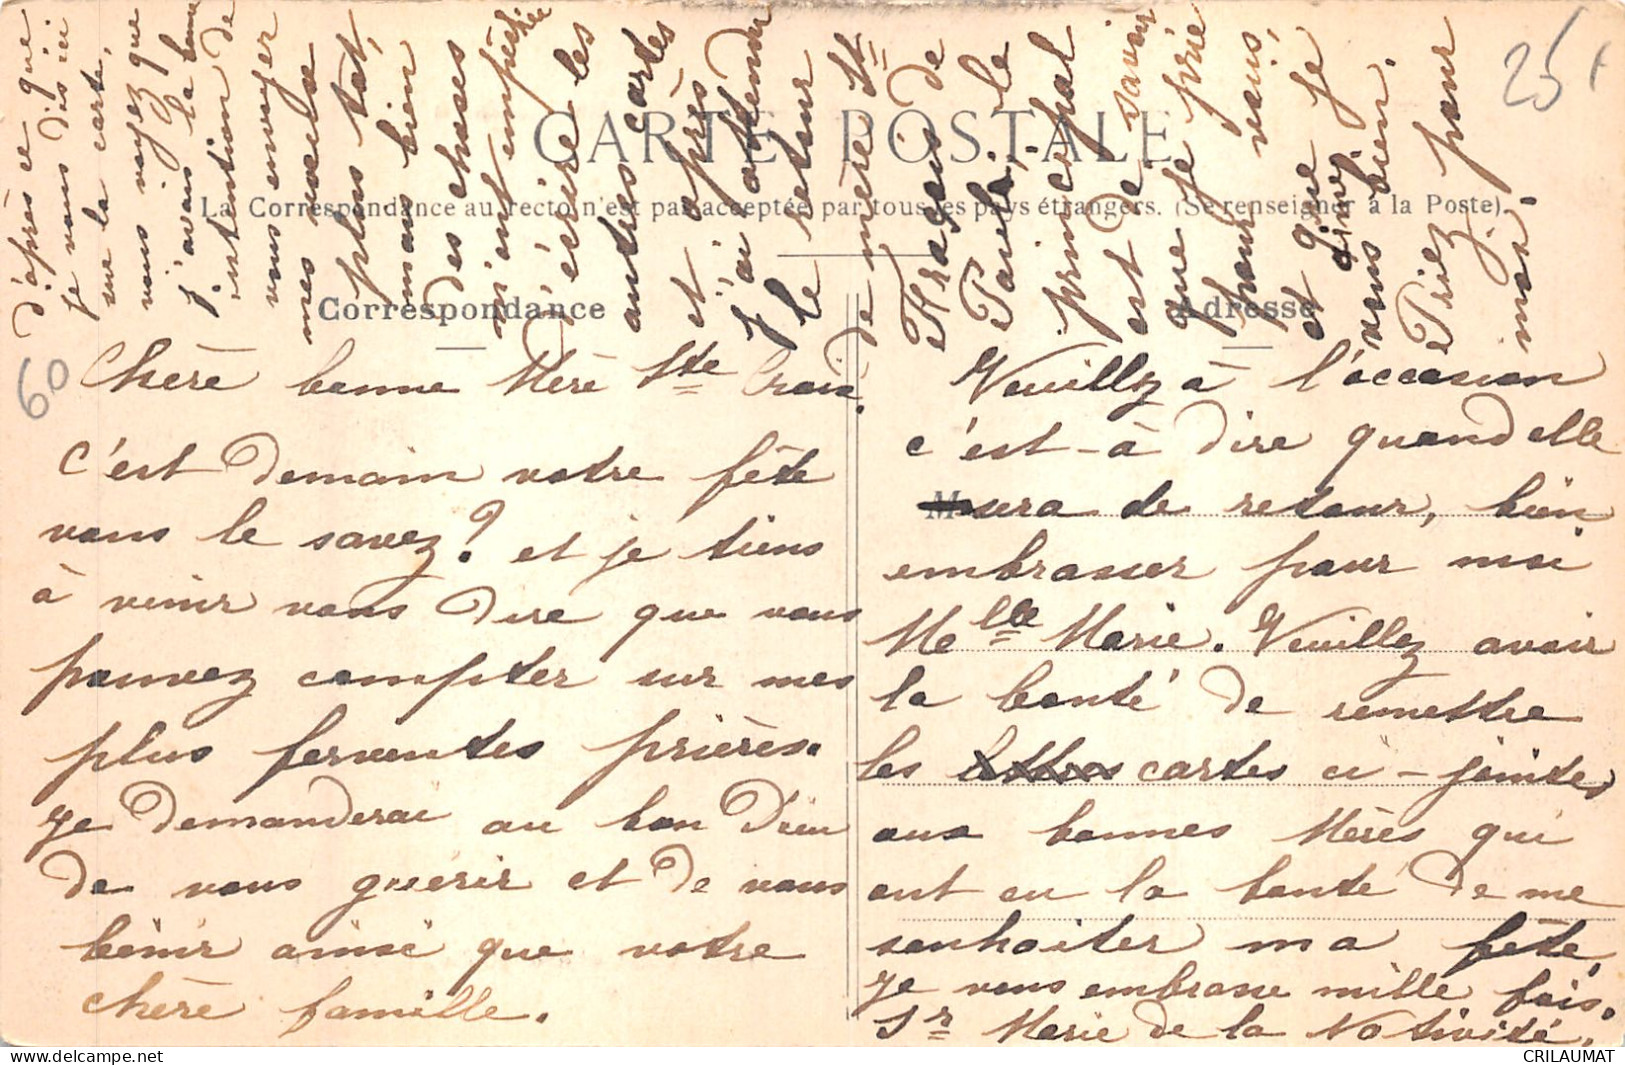 CARTE POSTALE
La Correspondance au recto n'est pas acceptée par tous les pays étrangers. (Se renseigner à la Poste)
Correspondance
Adresse
Chère bonne Mère Ste Croix.
C'est demain votre fête
vous le savez? et je tiens
à venir vous dire que vous
pouvez compter sur mes
plus ferventes prières.
Je demanderai au bon Dieu
de vous guérir et de vous
bénir ainsi que votre
chère famille.
Veuillez à l'occasion
c'est-à dire quand elle
sera de retour, bien
embrasser pour moi
Melle Marie. Veuillez avoir
la bonté de remettre
les cartes ci-jointes
aux bonnes Mères qui
ont eu la bonté de me
souhaiter ma fête,
je vous embrasse mille fois.
Sr Marie de la Nativité.
d'après ce que
je vous dis ici
sur la carte,
vous voyez que
j'avais la bonne
intention de
vous envoyer
mes voeux
plus tôt,
mais bien
des choses
m'ont empêchée
d'écrire les
autres cartes
et après
j'ai attendu
le retour
de mère Ste
de
Paula, le
principal
est de savoir
que je prie
pour vous,
et que je
vous
bien.
Priez pour
moi.
60
25
CRILAUMAT